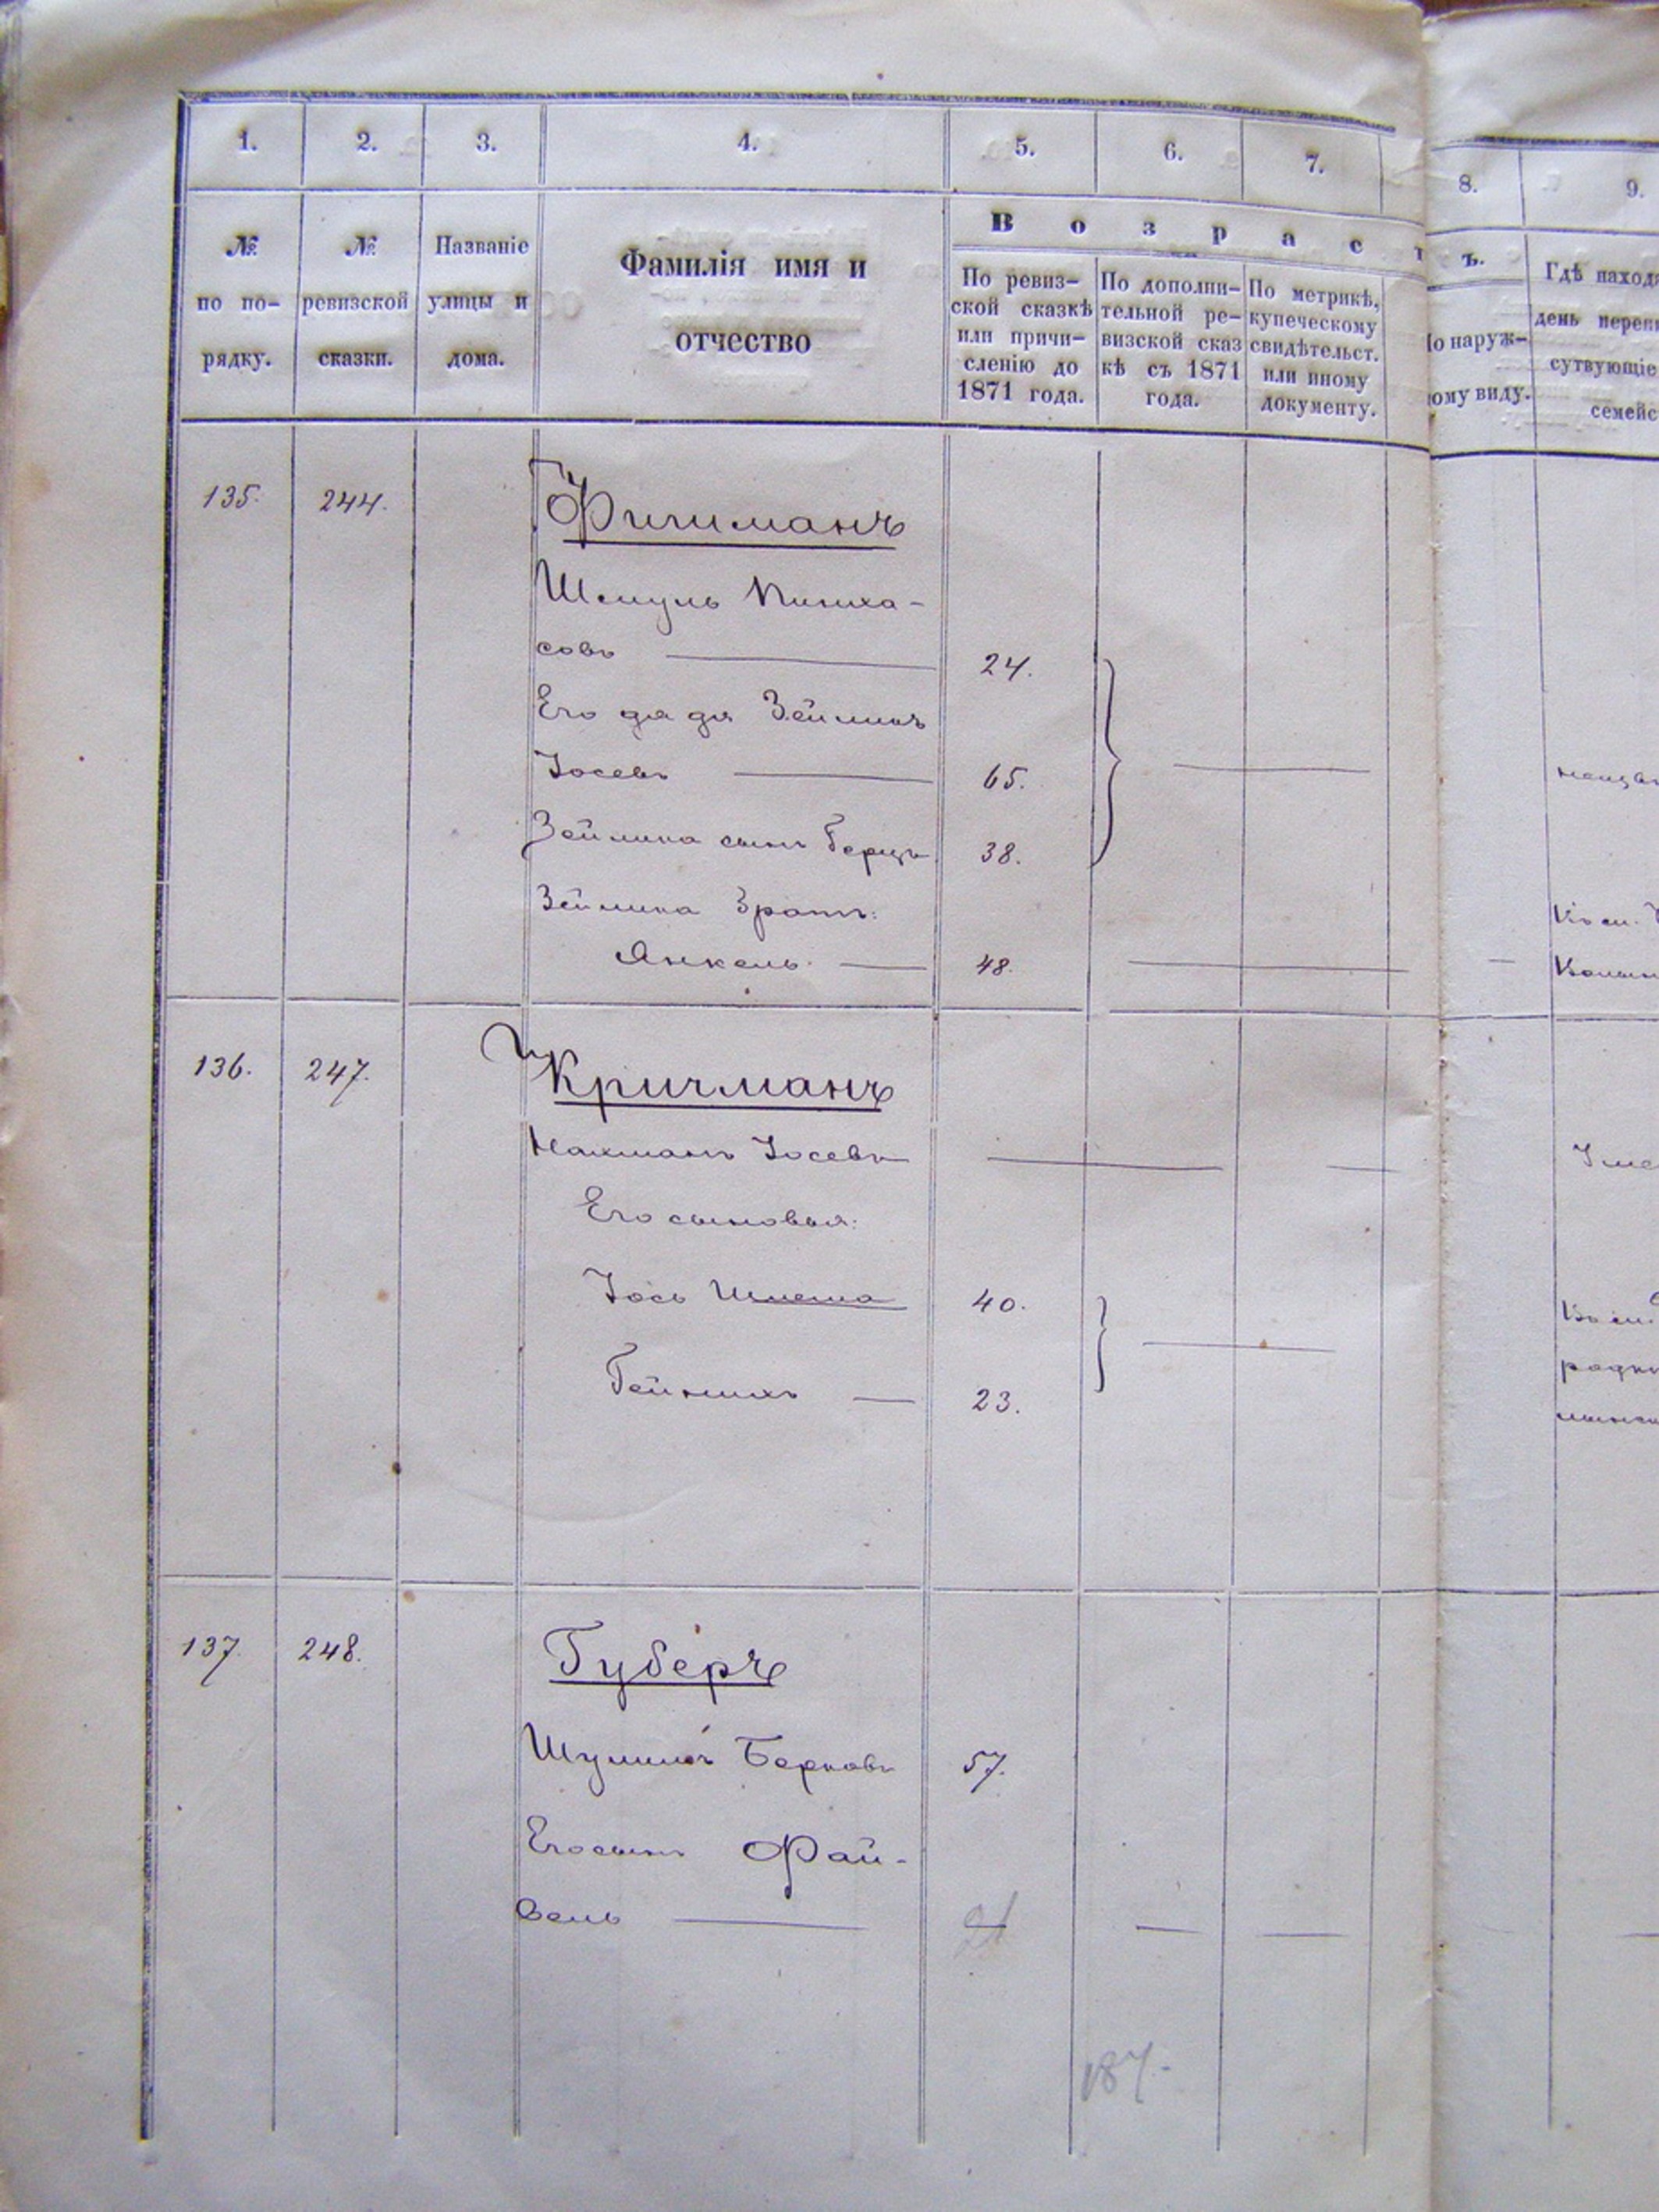 1. 2. 3. 4. 5. 6. 7. 8. 9.
№ по по-рядку.
№ ревизской сказки.
Названіе улицы и дома.
Фамилія имя и
отчество
В о з р а с т ъ.
По ревиз-
ской сказкѣ
или причи-
сленію до
1871 года.
По дополни-
тельной ре-
визской сказ
кѣ съ 1871
года.
По метрикѣ,
купеческому
свидѣтельст.
или иному
документу.
о наруж-
ому виду.
Гдѣ наход
день переп
сутвующіе
семейс
135. 244.
Шмуль Пинха-
совъ 24.
Его дядя Зейликъ
Іосевъ 65.
Зейлика сынъ Герцъ 38.
Зейлика братъ:
Янкель 48.
136. 247. Кричманъ
Нахманъ Іосевъ
Его сыновья:
Іось Шлема 40.
Гейнихъ 23.
137. 248. Губеръ
Шулимъ Берковъ 57.
Его сынъ Фай-
вель 21
187.